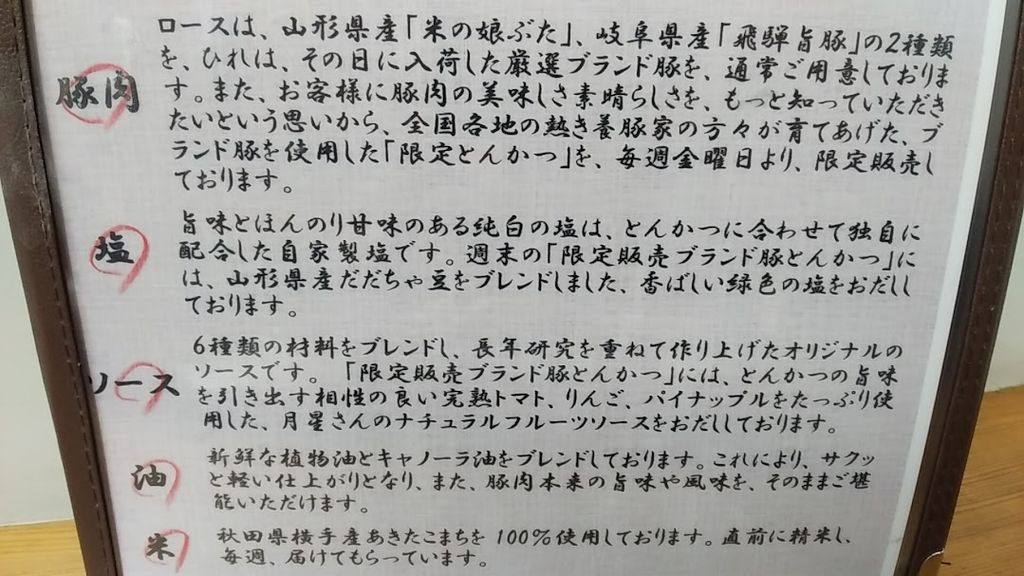 豚肉
ロースは、山形県産「米の娘ぶた」、岐阜県産「飛騨旨豚」の2種類
を、ひれは、その日に入荷した厳選ブランド豚を、通常ご用意しておりま
す。また、お客様に豚肉の美味しさ素晴らしさを、もっと知っていただき
たいという思いから、全国各地の熱き養豚家の方々が育てあげた、ブ
ランド豚を使用した「限定とんかつ」を、毎週金曜日より、限定販売し
ております。
塩
旨味とほんのり甘味のある純白の塩は、とんかつに合わせて独自に
配合した自家製塩です。週末の「限定販売ブランド豚とんかつ」に
は、山形県産だだちゃ豆をブレンドしました、香ばしい緑色の塩をおだし
しております。
ソース
6種類の材料をブレンドし、長年研究を重ねて作り上げたオリジナルの
ソースです。「限定販売ブランド豚とんかつ」には、とんかつの旨味
を引き出す相性の良い完熟トマト、りんご、パイナップルをたっぷり使
用した、月星さんのナチュラルフルーツソースをおだししております。
油
新鮮な植物油とキャノーラ油をブレンドしております。これにより、サクッ
と軽い仕上がりとなり、また、豚肉本来の旨味や風味を、そのままご堪
能いただけます。
米
秋田県横手産あきたこまちを100%使用しております。直前に精米し、
毎週、届けてもらっています。